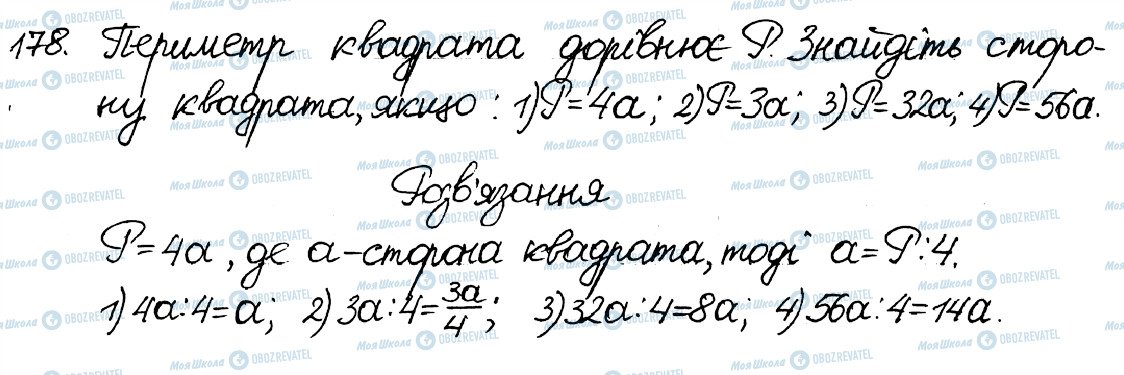 178. Периметр квадрата дорівнює P. Знайдіть сторо-
ну квадрата, якщо: 1) P=4a; 2) P=3a; 3) P=32a; 4) P=56a.
Розв'язання
P=4a, де a-сторона квадрата, тоді a=P:4.
1) 4a:4=a; 2) 3a:4=3a/4; 3) 32a:4=8a; 4) 56a:4=14a.
МояШкола OBOZREVATEL